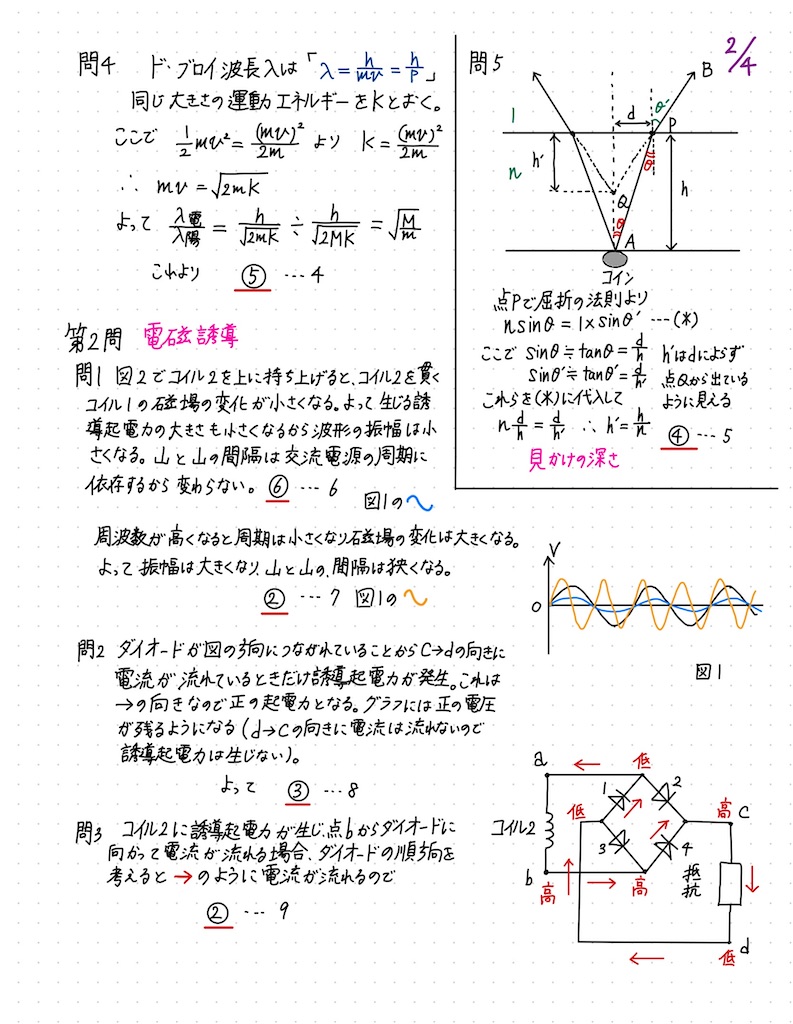 2/4
問4 ド・ブロイ波長λは「λ = h/mv = h/P」
同じ大きさの運動エネルギーをKとおく。
ここで 1/2 mv² = (mv)²/2m より K = (mv)²/2m
∴ mv = √2mK
よって λ電/λ陽 = h/√2mK ÷ h/√2MK = √M/m
これより ⑤ … 4
問5
B
θ'
d
1
P
h'
θ
n
h
Q
θ
A
コイン
点Pで屈折の法則より
n sinθ = 1× sinθ' … (*)
ここで sinθ ≒ tanθ = d/h
sinθ' ≒ tanθ' = d/h'
これらを(*)に代入して
n d/h = d/h' ∴ h' = h/n
h'はdによらず
点Qから出ている
ように見える
④ … 5
見かけの深さ
第2問 電磁誘導
問1 図2でコイル2を上に持ち上げると、コイル2を貫く
コイル1の磁場の変化が小さくなる。よって生じる誘
導起電力の大きさも小さくなるから波形の振幅は小
さくなる。山と山の間隔は交流電源の周期に
依存するから変わらない。 ⑥ … 6
図1の
周波数が高くなると周期は小さくなり磁場の変化は大きくなる。
よって振幅は大きくなり、山と山の、間隔は狭くなる。
② … 7 図1の
V
0
図1
問2 ダイオードが図の方向につながれていることからC→dの向きに
電流が流れているときだけ誘導起電力が発生。これは
→の向きなので正の起電力となる。グラフには正の電圧
が残るようになる(d→Cの向きに電流は流れないので
誘導起電力は生じない)。
よって ③ … 8
問3 コイル2に誘導起電力が生じ、点bからダイオードに
向かって電流が流れる場合、ダイオードの順方向を
考えると→のように電流が流れるので
② … 9
a
低
1
2
低
高
C
コイル2
3
4
抵抗
b
高
高
d
低